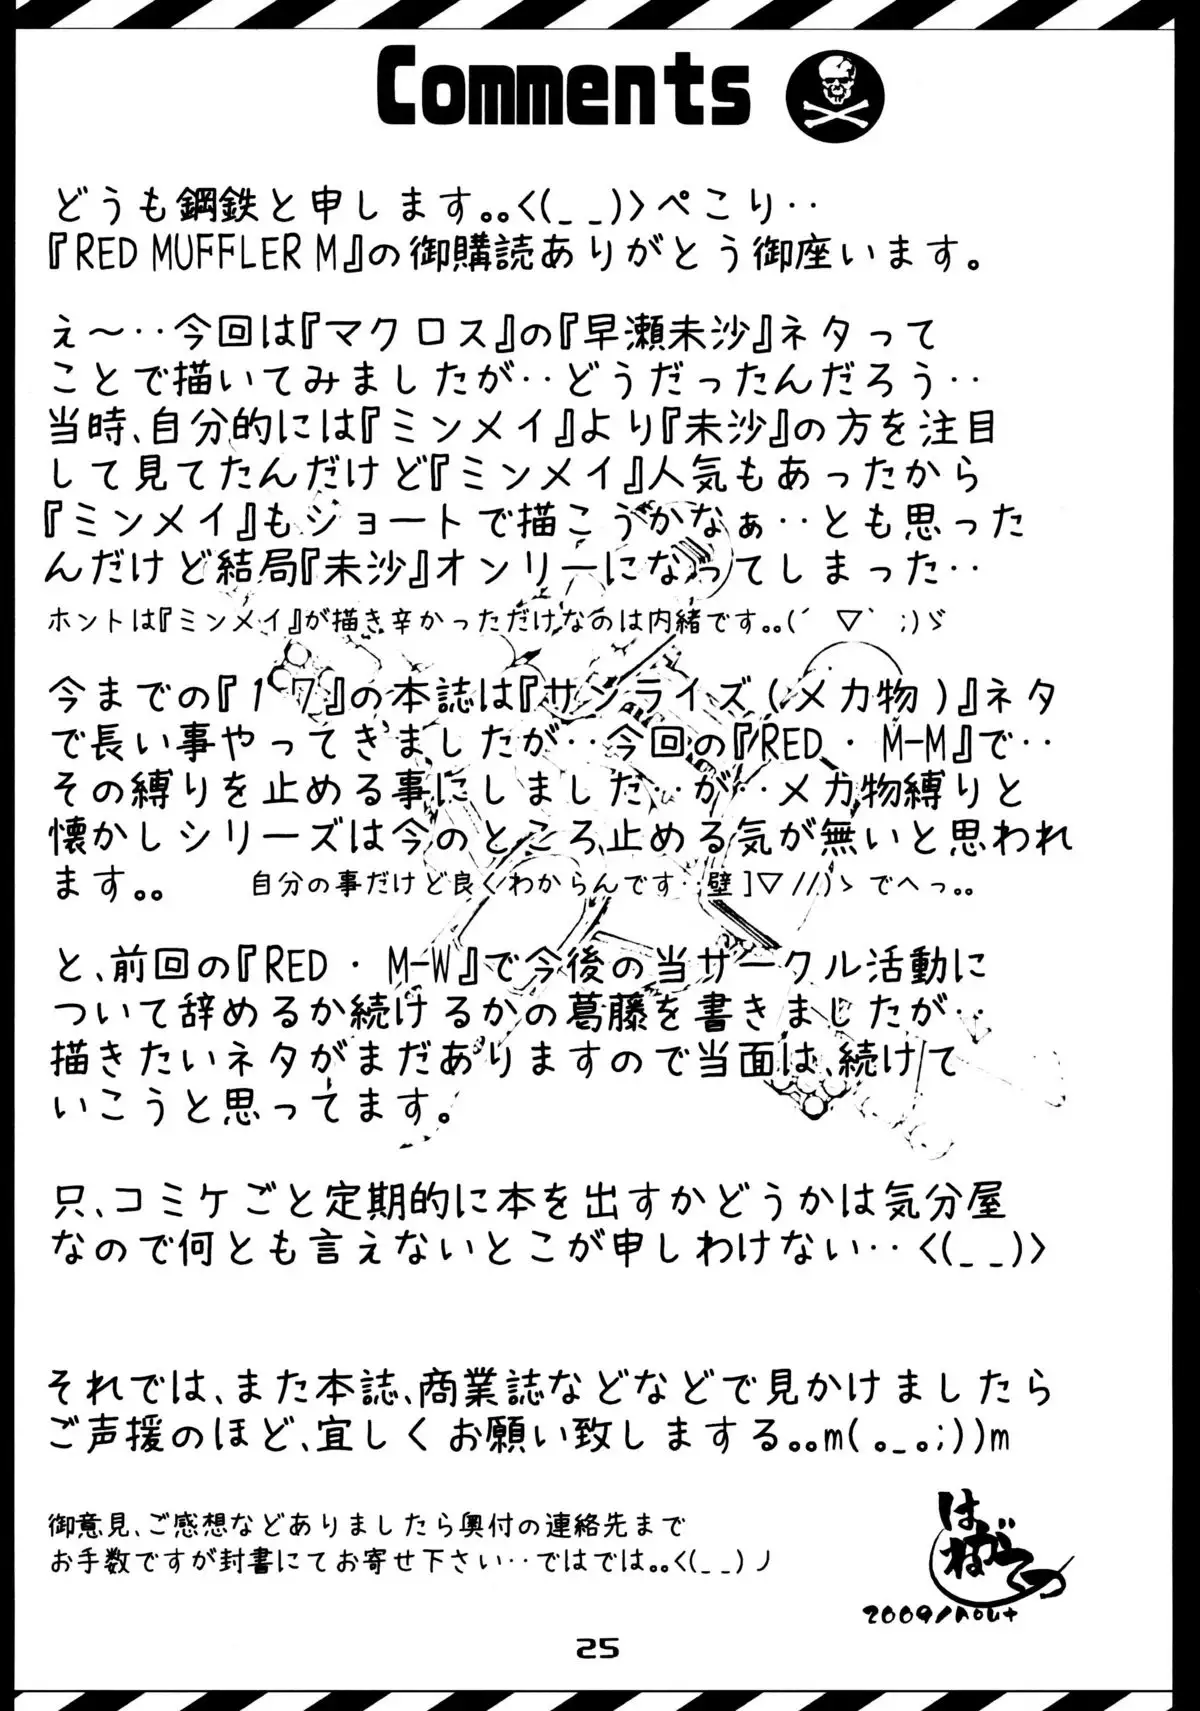 Comments
どうも鋼鉄と申します｡｡<(_ _)>ぺこり‥
『RED MUFFLER M』の御購読ありがとう御座います。
え～‥今回は『マクロス』の『早瀬未沙』ネタって
ことで描いてみましたが‥どうだったんだろう‥
当時、自分的には『ミンメイ』より『未沙』の方を注目
して見てたんだけど『ミンメイ』人気もあったから
『ミンメイ』もショートで描こうかなぁ‥とも思った
んだけど結局『未沙』オンリーになってしまった‥
ホントは『ミンメイ』が描き辛かっただけなのは内緒です｡｡(´ ▽｀;)ゞ
今までの『17』の本誌は『サンライズ(メカ物)』ネタ
で長い事やってきましたが‥今回の『RED・M-M』で‥
その縛りを止める事にしました‥が‥メカ物縛りと
懐かしシリーズは今のところ止める気が無いと思われ
ます｡｡ 自分の事だけど良くわからんです‥壁]▽//)ゝでへっ｡｡
と、前回の『RED・M-W』で今後の当サークル活動に
ついて辞めるか続けるかの葛藤を書きましたが‥
描きたいネタがまだありますので当面は、続けて
いこうと思ってます。
只、コミケごと定期的に本を出すかどうかは気分屋
なので何とも言えないとこが申しわけない‥<(_ _)>
それでは、また本誌、商業誌などなどで見かけましたら
ご声援のほど、宜しくお願い致しまする｡｡m(｡_｡;))m
御意見、ご感想などありましたら奥付の連絡先まで
お手数ですが封書にてお寄せ下さい‥ではでは｡｡<(_ _)ノ
はがねてつ
2009/Aou+
25